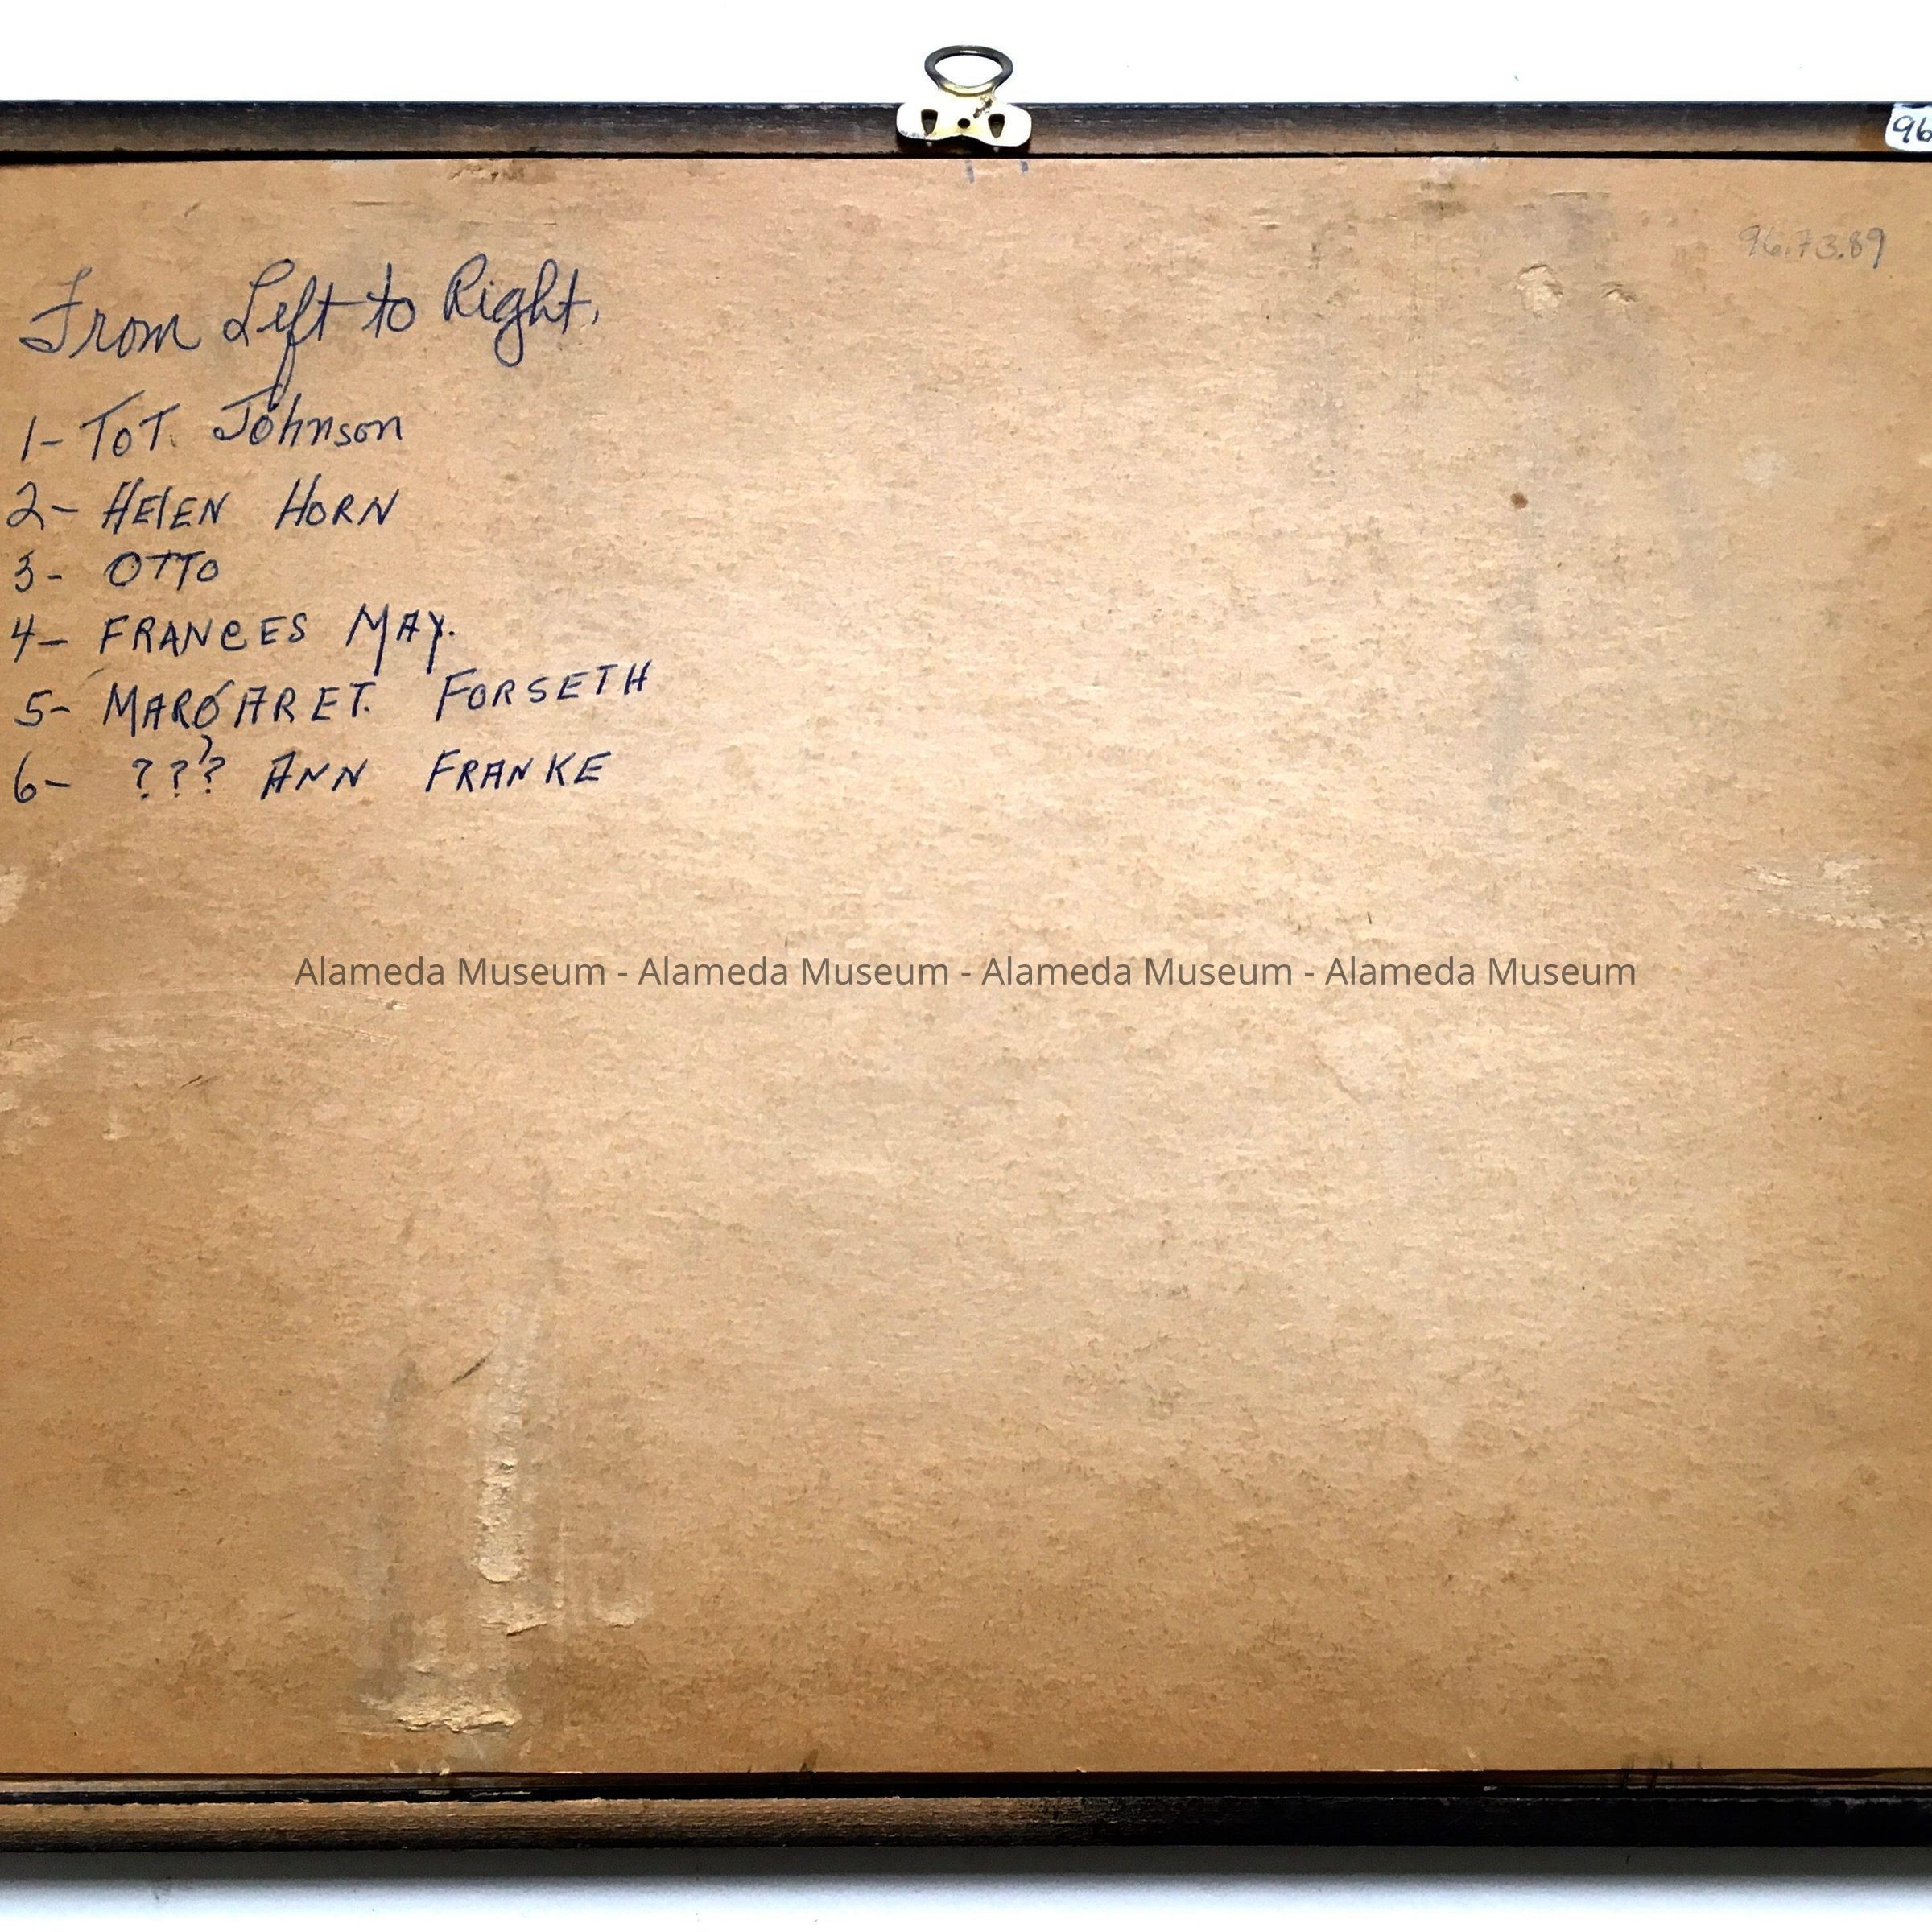 96
96.73.89
From Left to Right,
1- ToT. Johnson
2- HElEN HORN
3- OTTO
4- FRANCES MAY.
5- MARGARET. FORSETH
6- ??? ANN FRANKE
Alameda Museum - Alameda Museum - Alameda Museum - Alameda Museum